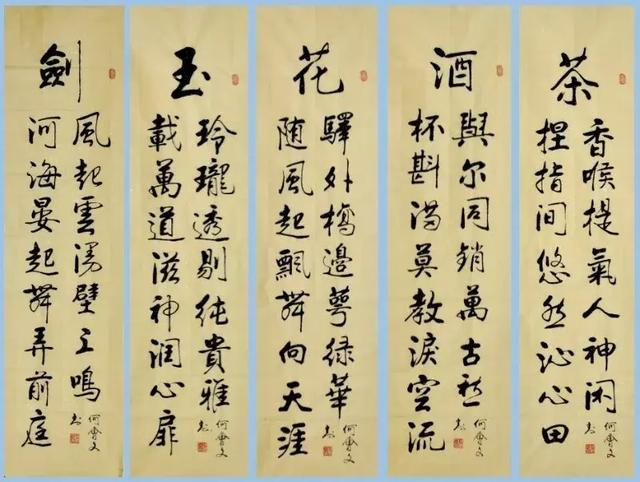 茶
香喉提氣人神闲
捏指间悠然沁心田
何會文
书
酒
與尔同銷萬古愁
杯斟满莫教淚空流
何會文
书
花
驛外橋邊萼绿華
随風起飄舞向天涯
何會文
书
玉
玲瓏透剔纯貴雅
載萬道滋神润心扉
何會文
书
劍
風起雲湯壁上鳴
河海晏起舞弄前庭
何會文
书